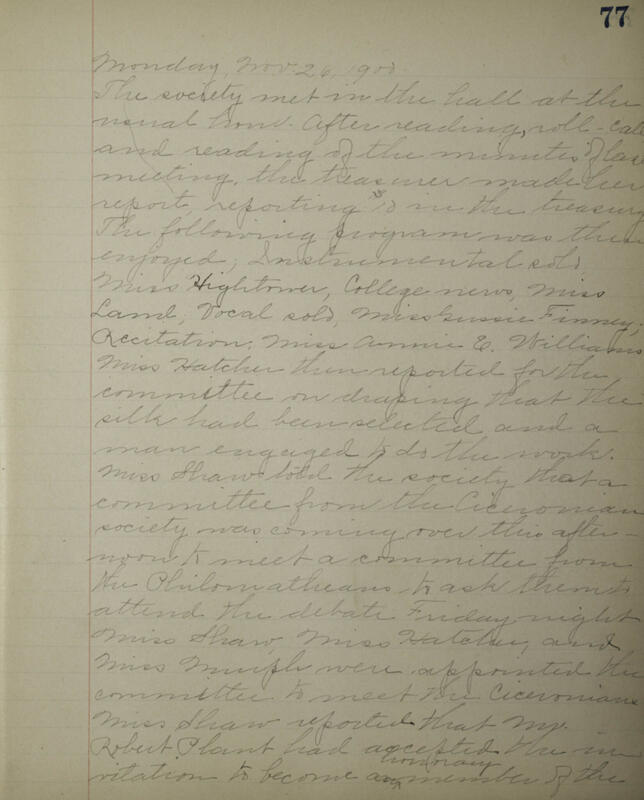 77
Monday, Nov. 26, 1900.
The society met in the hall at the
usual hour. After reading, roll-call
and reading of the minutes of last
meeting, the treasurer made her
report, reporting in the treasury
The following program was then
enjoyed; Instrumental solo,
Miss Hightower, College news, Miss
Land, Vocal solo, Miss Gussie Finney,
Recitation, Miss Annie E. Williams
Miss Hatcher then reported for the
committee on draping that the
silk had been selected and a
man engaged to do the work.
Miss Shaw told the society that a
committee from the Ciceronian
society was coming over this after-
noon to meet a committee from
the Philomatheans to ask them to
attend the debate Friday night
Miss Shaw, Miss Hatcher, and
Miss Murph were appointed the
committee to meet the Ciceronians
Miss Shaw reported that Mr.
Robert Plant had accepted the in
honorary
vitation to become an member of the